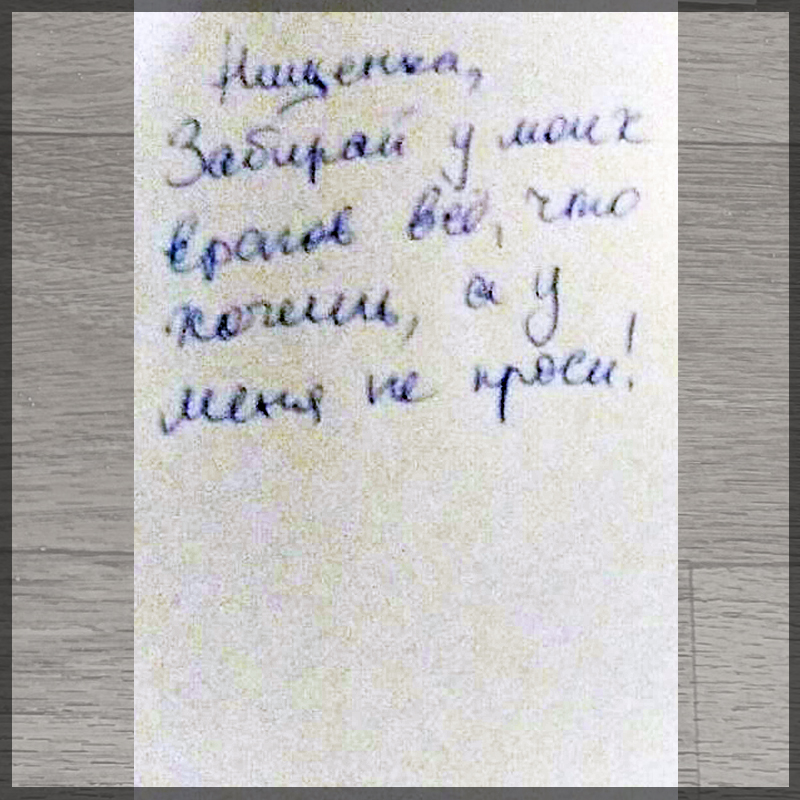 Нищенка,
Забирай у моих
врагов всё, что
хочешь, а у
меня не проси!